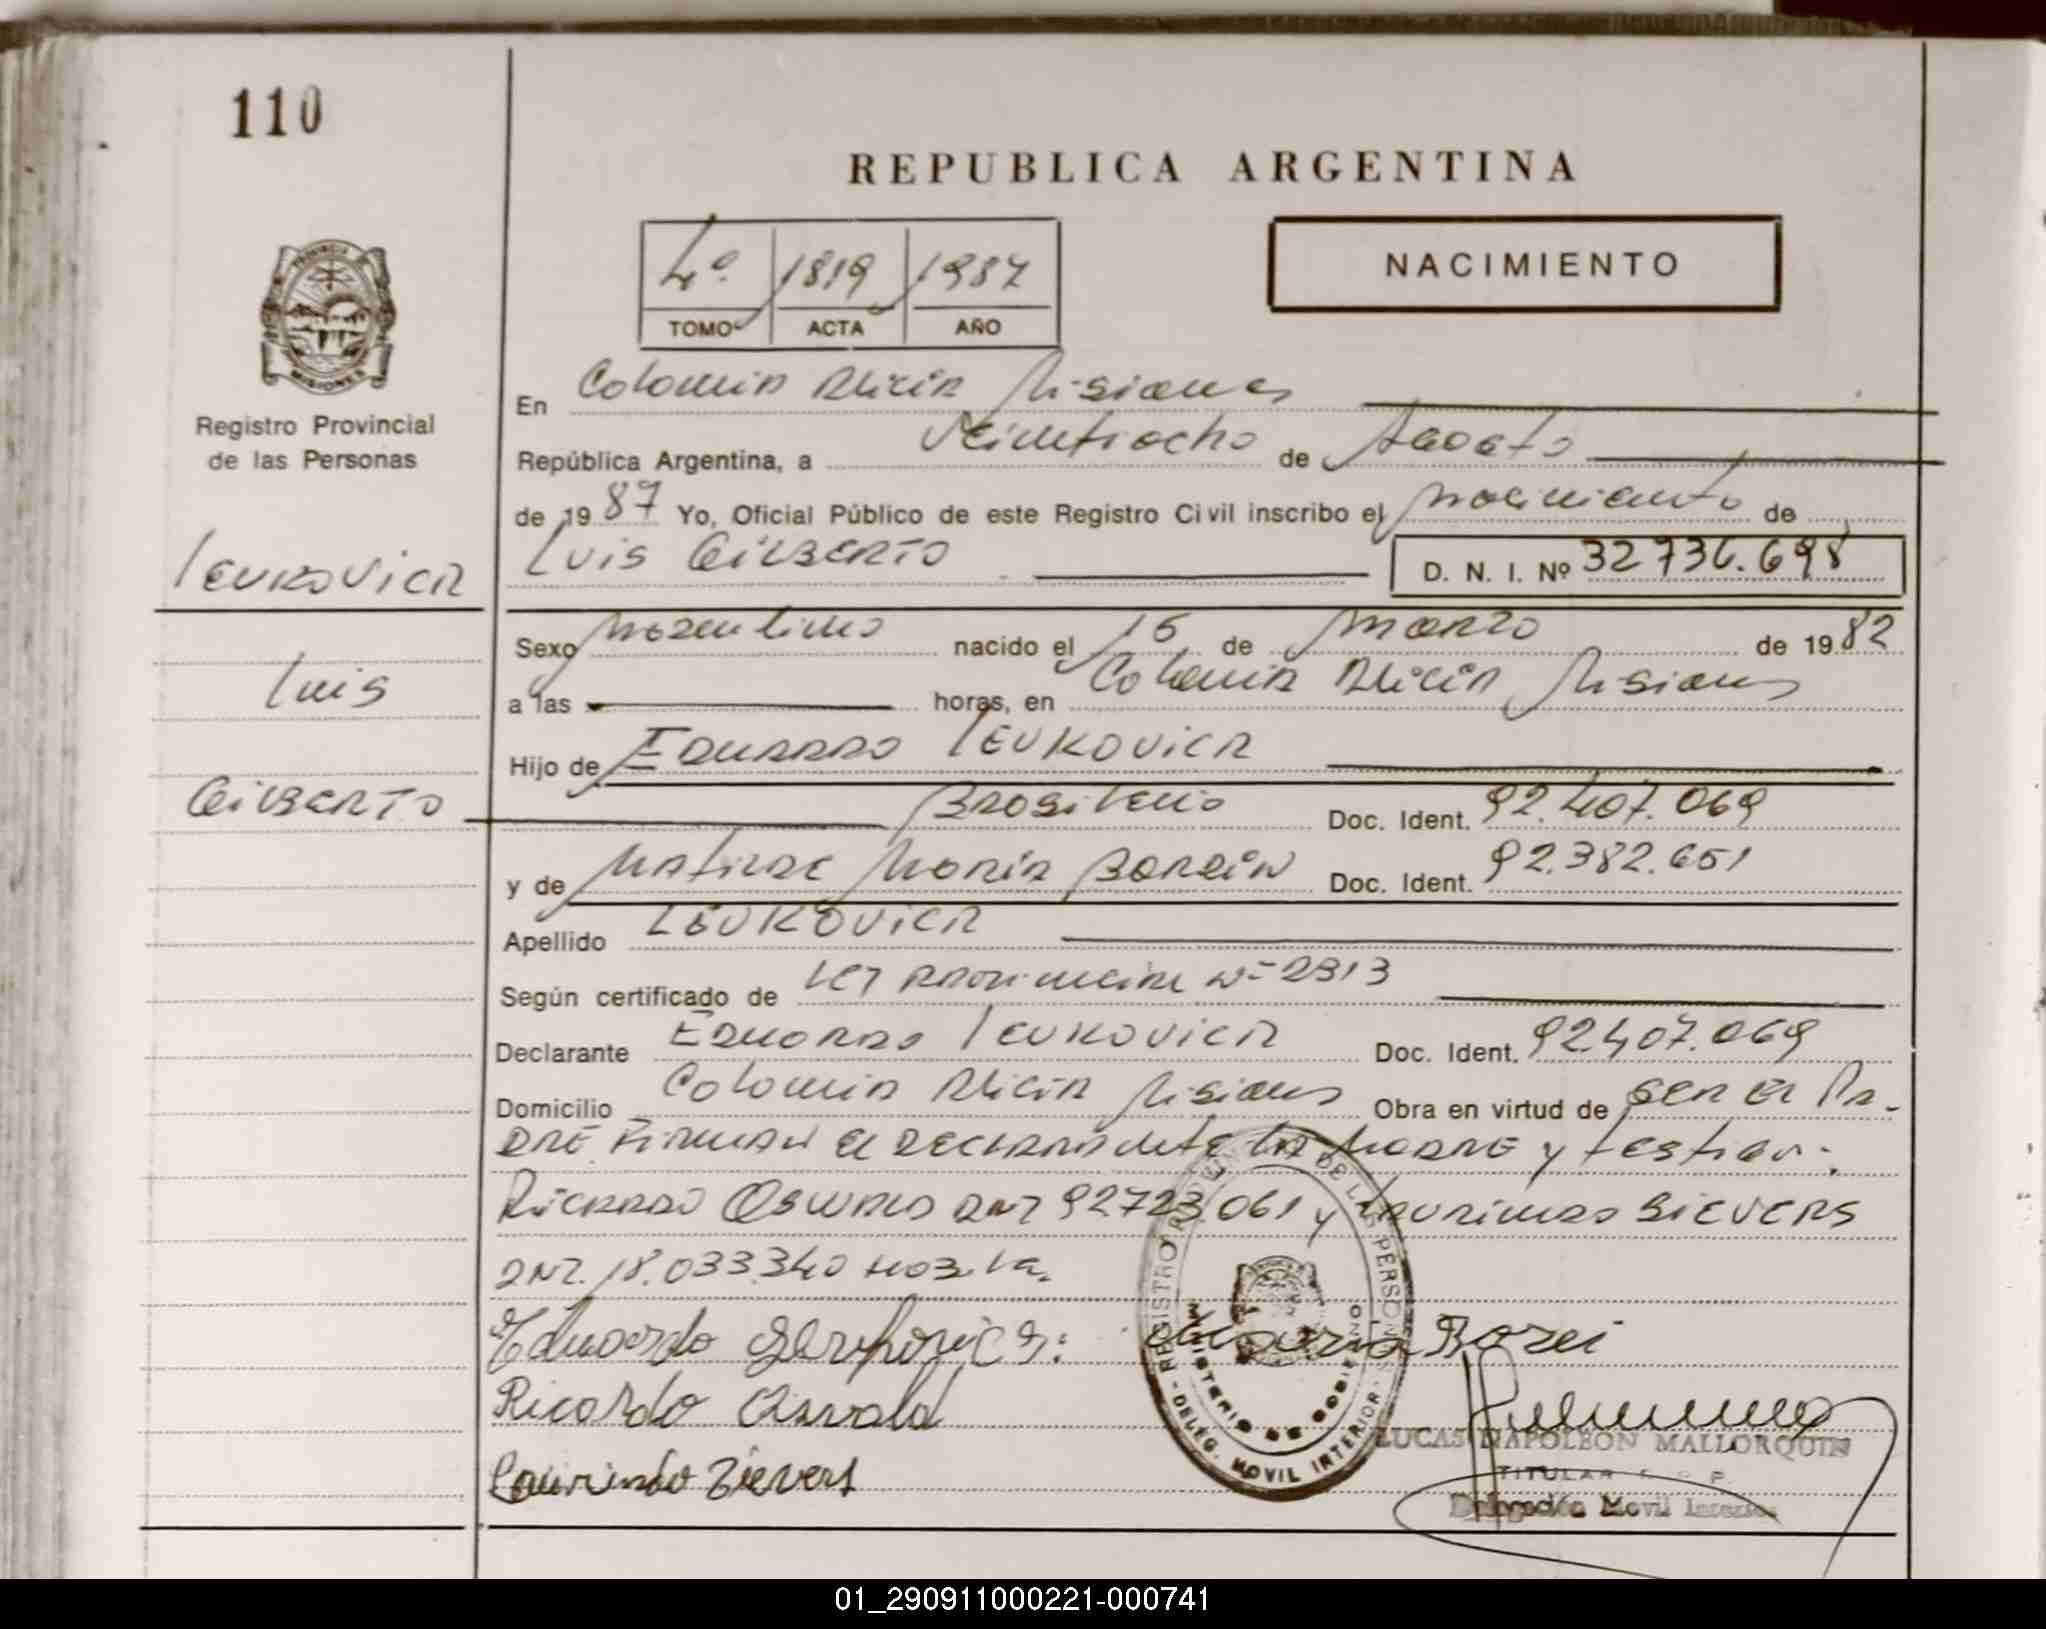 110
REPUBLICA ARGENTINA
4º 1819 1987
TOMO ACTA AÑO
NACIMIENTO
PROVINCIA
MISIONES
Registro Provincial
de las Personas
En Colonia Alicia Misiones
República Argentina, a Veintiocho de Agosto
de 1987 Yo, Oficial Público de este Registro Civil inscribo el nacimiento de
Levkovicz
Luis Gilberto D. N. I. Nº 32736.698
Sexo masculino nacido el 15 de marzo de 1982
Luis
a las horas, en Colonia Alicia Misiones
Hijo de Eduardo Levkovicz
Gilberto
Brasileño Doc. Ident. 92.407.069
y de Matilde María Doc. Ident. 92.382.651
Apellido LEVKOVICZ
Según certificado de Ley Provincial Nº 2313
Declarante Eduardo Levkovicz Doc. Ident. 92407.069
Domicilio Colonia Alicia Misiones Obra en virtud de ser el Pa-
dre Firman el declarante la madre y testigos:
Ricardo Oswald DNI 92723061 y Laurindo Sievers
DNI. 18.033340
Eduardo
Maria Borei
Ricardo Oswald
Laurindo Zievers
REGISTRO PROVINCIAL DE LAS PERSONAS
MINISTERIO DE GOBIERNO
- DELEG. MOVIL INTERIOR -
LUCAS NAPOLEON MALLORQUIN
TITULAR R. P. P.
Delegación Movil Interior
01_290911000221-000741